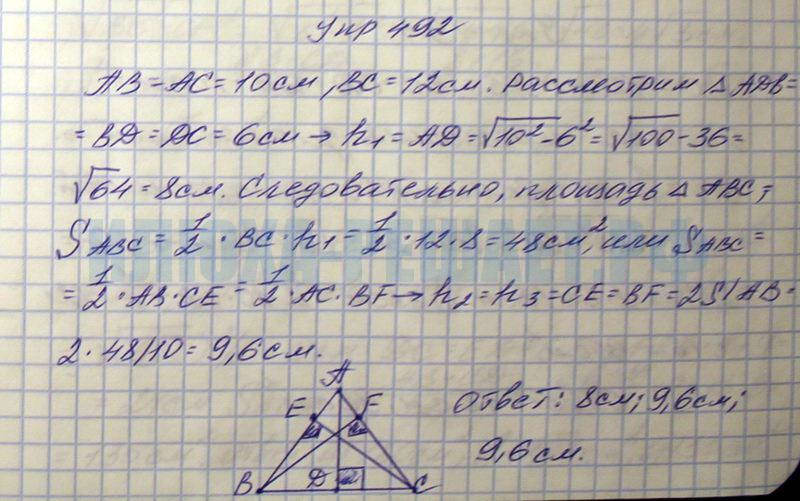 Упр 492
AB = AC = 10см, BC = 12см. Рассмотрим △ ADB =
= BD = DC = 6см → h₁ = AD = √10² - 6² = √100 - 36 =
√64 = 8см. Следовательно, площадь △ ABC;
S ABC = 1/2 · BC · h₁ = 1/2 · 12 · 8 = 48см², или S ABC =
= 1/2 · AB · CE = 1/2 · AC · BF → h₂ = h₃ = CE = BF = 2S/AB =
2 · 48/10 = 9,6см.
A
E F
B D C
Ответ: 8см; 9,6см;
9,6см.